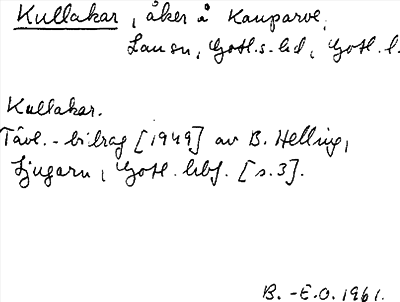 Kullakar, åker å Kauparve,
Lau sn, Gotl. s. hd, Gotl. l.
Kullakar.
Tävl.-bitrag [1949] av B. Helling,
Ljugarn, Gotl. hbf. [s.3].
B.-E.O. 1961.